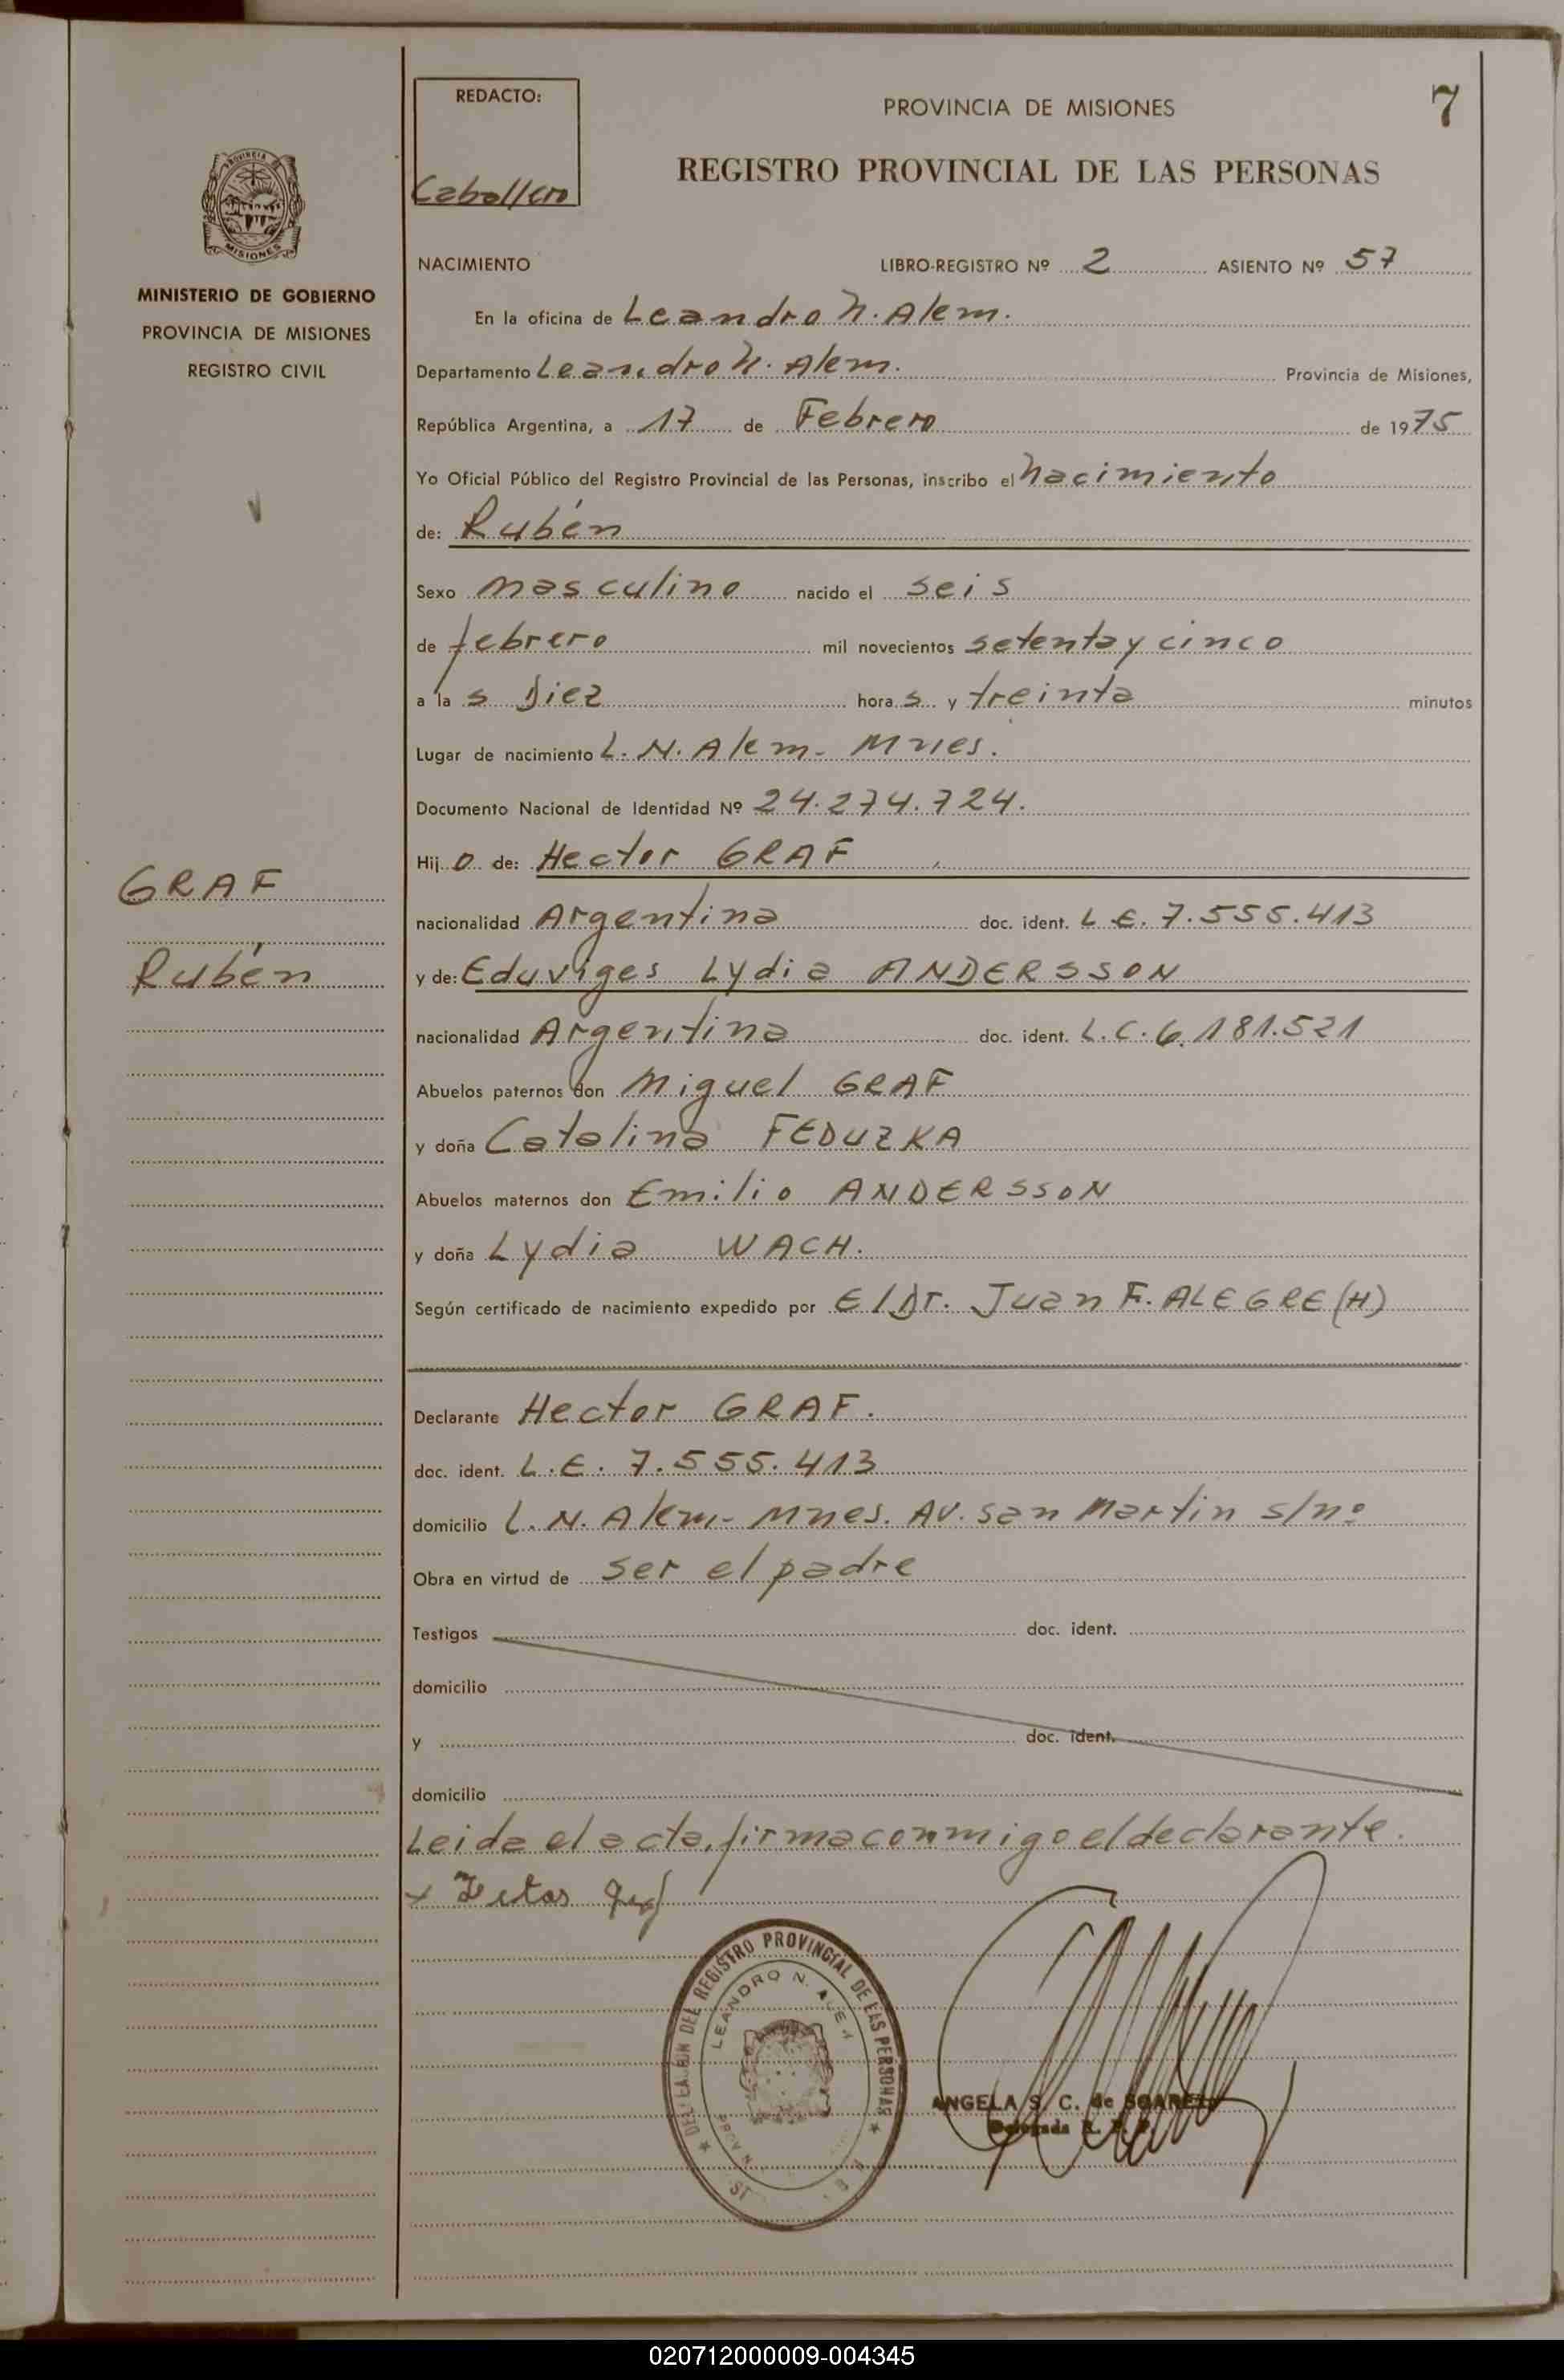 REDACTO:
Caballero
PROVINCIA DE MISIONES
7
REGISTRO PROVINCIAL DE LAS PERSONAS
MISIONES
MINISTERIO DE GOBIERNO
PROVINCIA DE MISIONES
REGISTRO CIVIL
NACIMIENTO LIBRO-REGISTRO Nº 2 ASIENTO Nº 57
En la oficina de Leandro N. Alem.
Departamento Leandro N. Alem. Provincia de Misiones,
República Argentina, a 17 de Febrero de 1975
Yo Oficial Público del Registro Provincial de las Personas, inscribo el nacimiento
de: Rubén
Sexo masculino nacido el seis
de febrero mil novecientos setenta y cinco
a la s Diez hora s y treinta minutos
Lugar de nacimiento L. N. Alem - Mnes.
Documento Nacional de Identidad Nº 24.274.724.
Hij o de: Hector GRAF
GRAF
nacionalidad Argentina doc. ident. L.E. 7.555.413
Rubén
y de: Eduviges Lydia ANDERSSON
nacionalidad Argentina doc. ident. L.C. 6.181.521
Abuelos paternos don Miguel GRAF
y doña Catalina FEDUZKA
Abuelos maternos don Emilio ANDERSSON
y doña Lydia WACH.
Según certificado de nacimiento expedido por El Dr. Juan F. ALEGRE (H)
Declarante Hector GRAF.
doc. ident. L.E. 7.555.413
domicilio L. N. Alem - Mnes. Av. San Martin s/nº
Obra en virtud de ser el padre
Testigos doc. ident.
domicilio
y doc. ident.
domicilio
Leida el acta, firma conmigo el declarante.
DEL REGISTRO PROVINCIAL DE LAS PERSONAS
LEANDRO N.
ANGELA S. C. de SOAREZ
Delegada
020712000009-004345